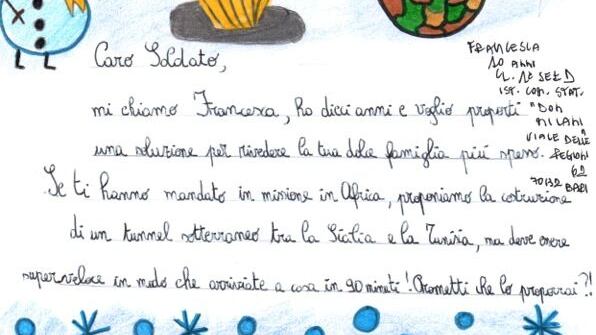 Caro Soldato,
mi chiamo Francesca, ho dieci anni e voglio proporti
una soluzione per rivedere la tua dolce famiglia più spesso.
Se ti hanno mandato in missione in Africa, proponiamo la costruzione
di un tunnel sotterraneo tra la Sicilia e la Tunisia, ma deve essere
superveloce in modo che arriviate a casa in 90 minuti! Prometti che lo proporrai?!
FRANCESCA
10 ANNI
CL. 1ª SEZ. D
IST. COM. STAT.
"DON
MILANI"
VIALE DELLE
REGIONI
62
70132 BARI